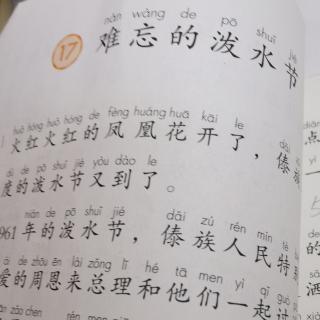 17 难忘的泼水节
nán wàng de pō shuǐ jié
huǒ hóng huǒ hóng de fèng huáng huā kāi le
火红火红的凤凰花开了，傣族
de pō shuǐ jié yòu dào le
度的泼水节又到了。
nián de pō shuǐ jié dǎi zú rén mín tè
961年的泼水节，傣族人民特别
ài de zhōu ēn lái zǒng lǐ hé tā men yì qǐ
爱的周恩来总理和他们一起过
点